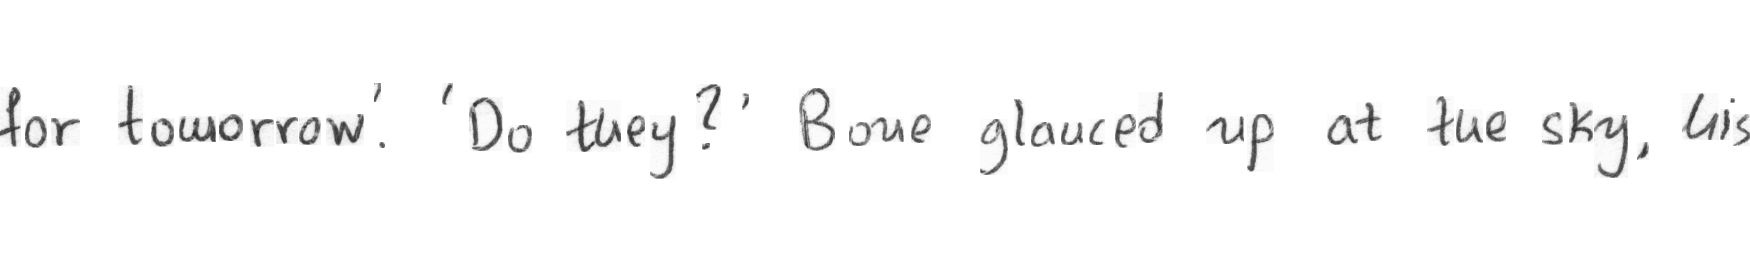 for tomorrow.' 'Do they?' Bone glanced up at the sky, his